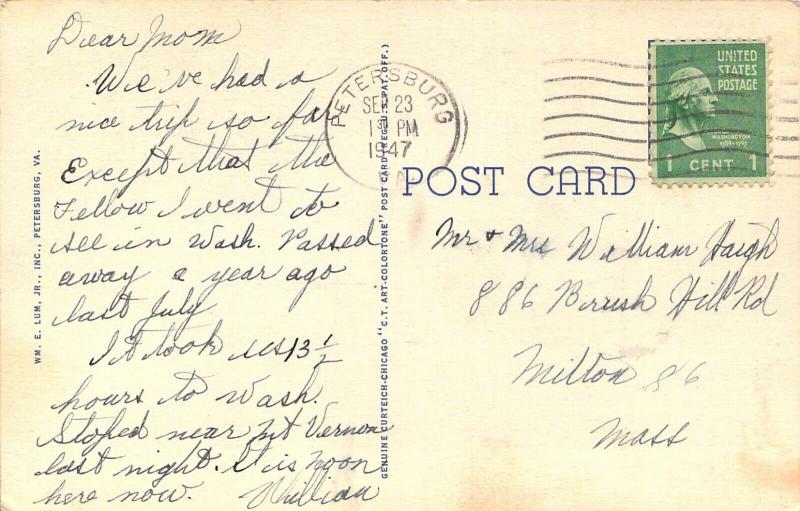 Dear Mom
We've had a
nice trip so far
Except that the
Fellow I went to
see in Wash. Passed
away a year ago
last July
It took us 13 1/2
hours to Wash.
Stoped near Mt Vernon
last night. It is noon
here now. William
WM. E. LUM, JR., INC., PETERSBURG, VA.
GENUINE CURTEICH-CHICAGO "C.T. ART-COLORTONE" POST CARD (REG. U.S. PAT. OFF.)
PETERSBURG
SEP 23
1 PM
1947
UNITED
STATES
POSTAGE
WASHINGTON
1789-1797
1 CENT 1
POST CARD
Mr + Mrs William Haigh
886 Brush Hill Rd
Milton 86
Mass